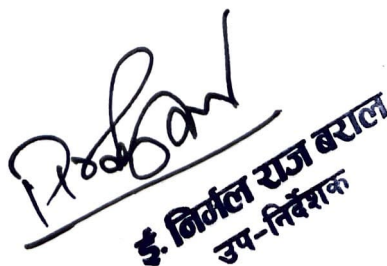 ई. निर्मल राज बराल
उप-निर्देशक